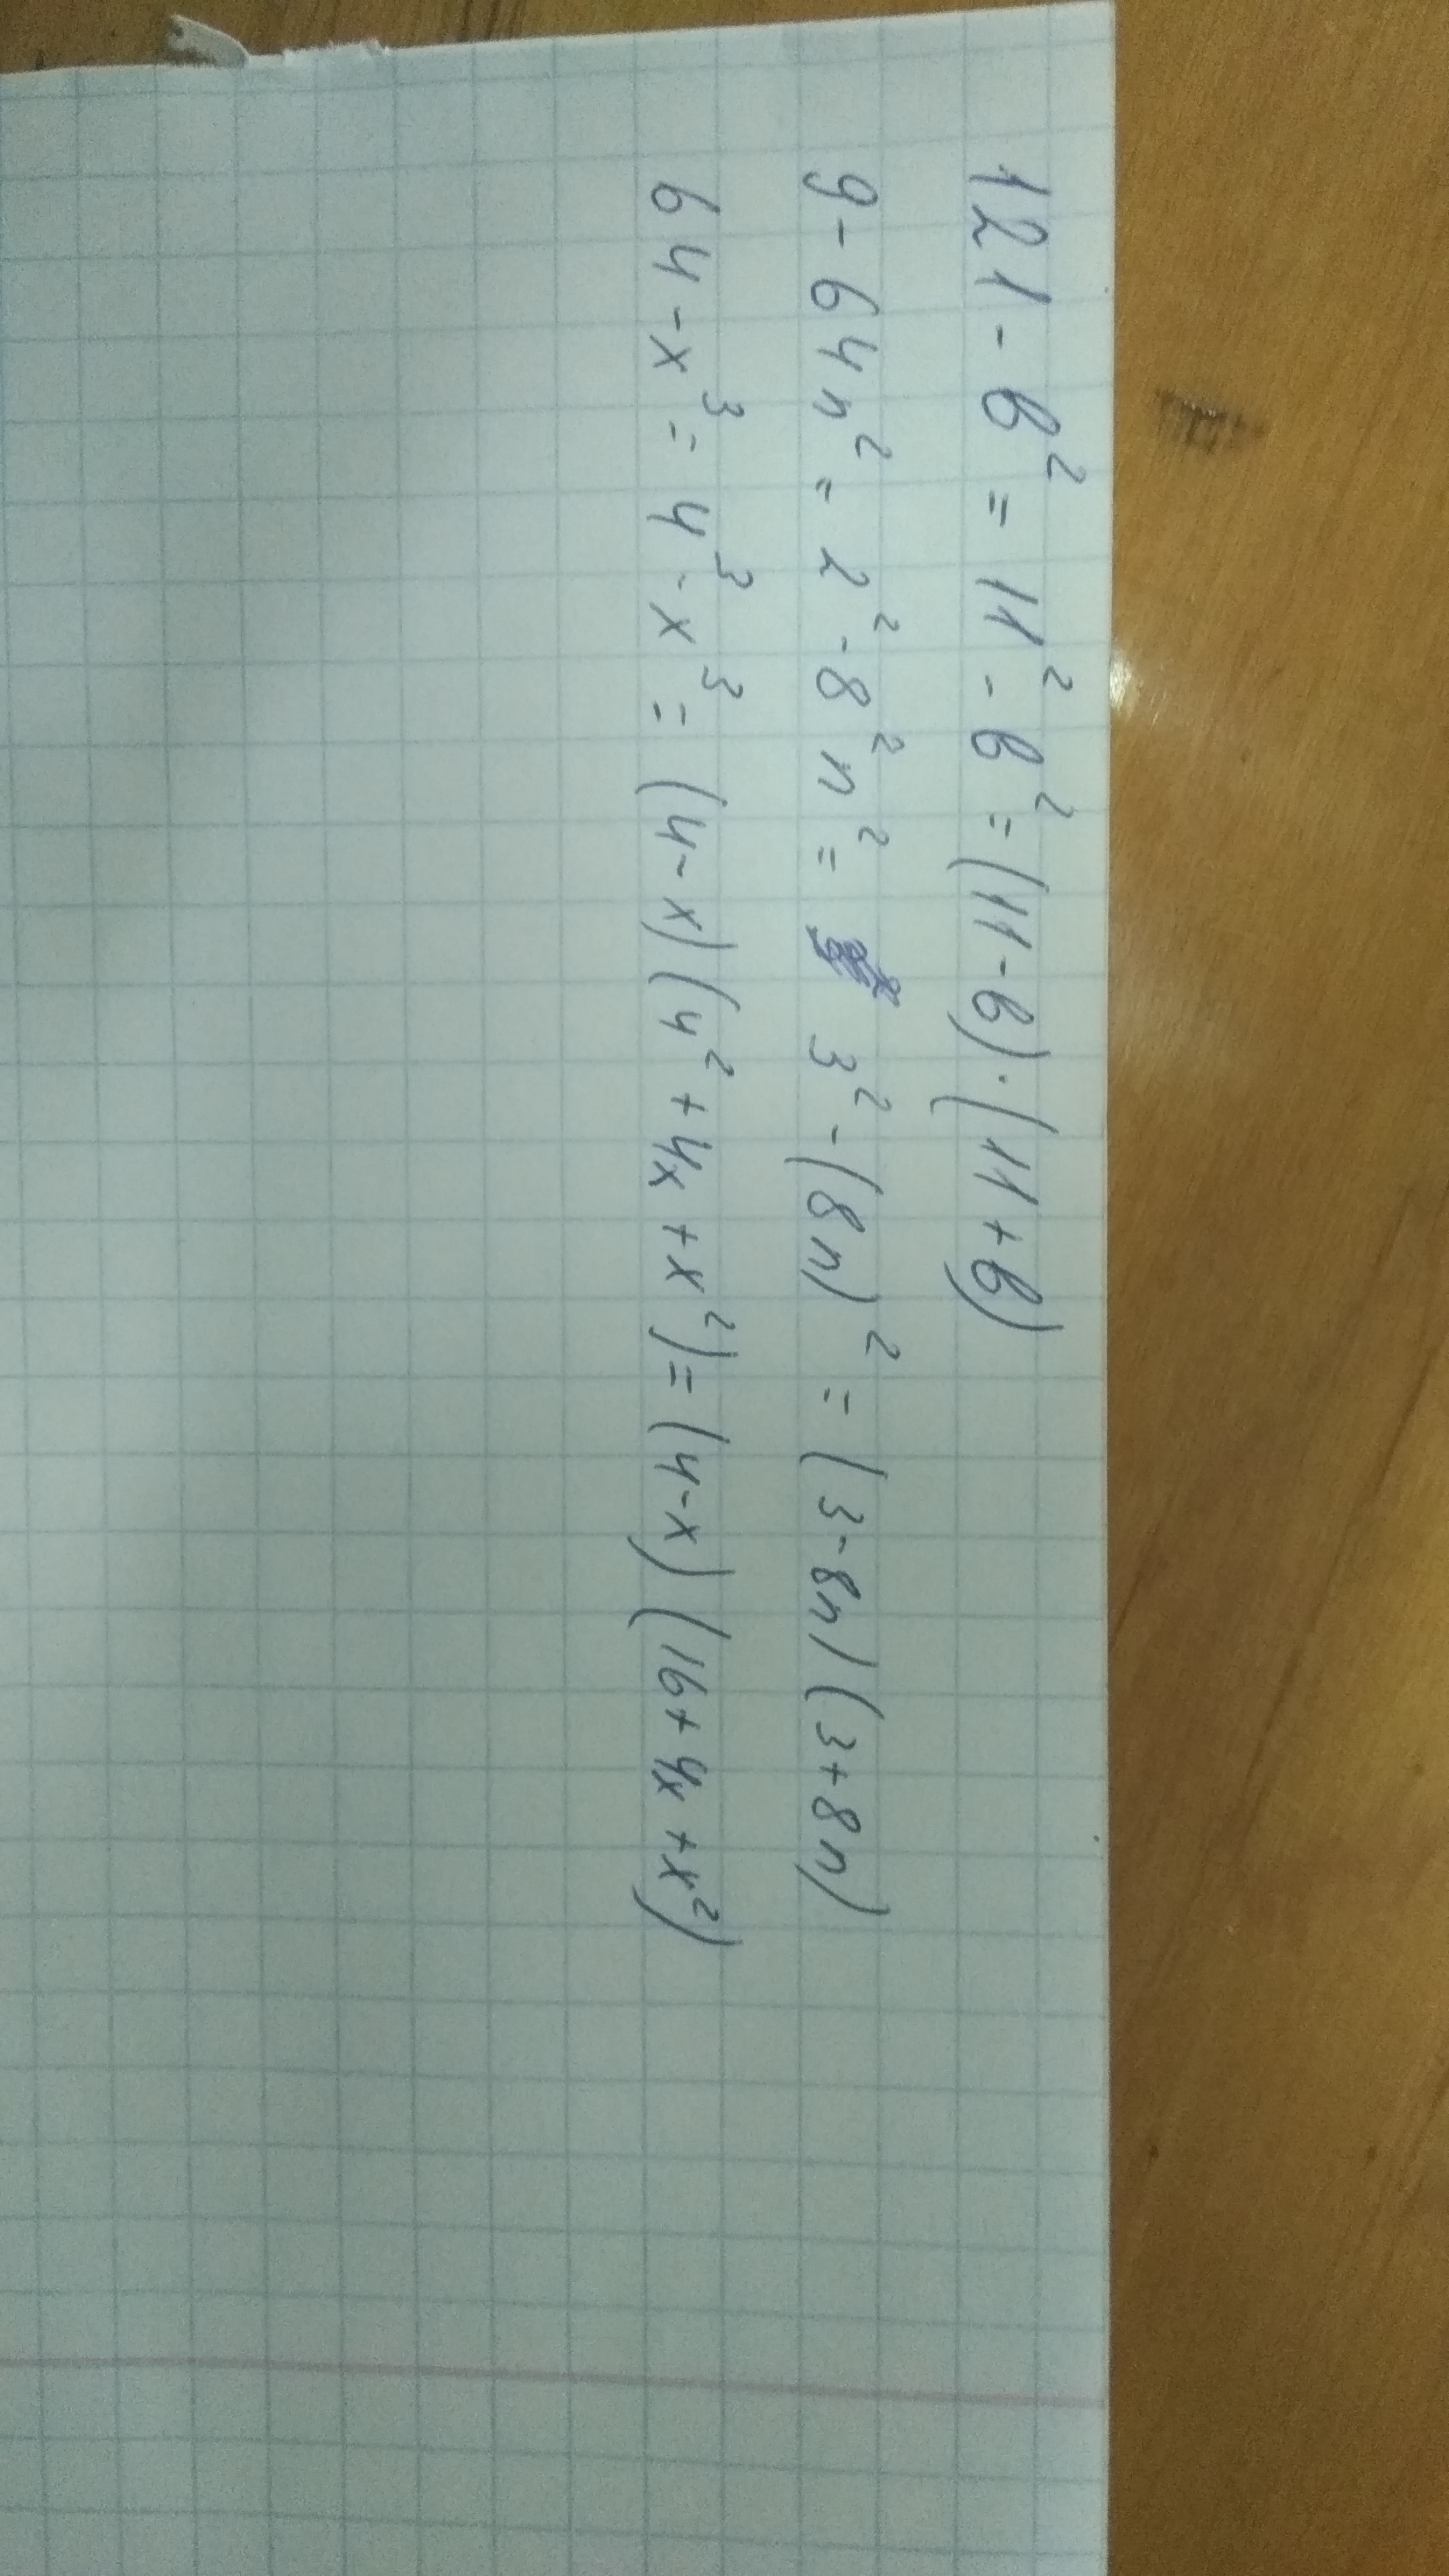 121 - в² = 11² - в² = (11 - в) · (11 + в)
9 - 64n² = 2² - 8²n² = 3² - (8n)² = (3 - 8n)(3 + 8n)
64 - x³ = 4³ - x³ = (4 - x)(4² + 4x + x²) = (4 - x)(16 + 4x + x²)